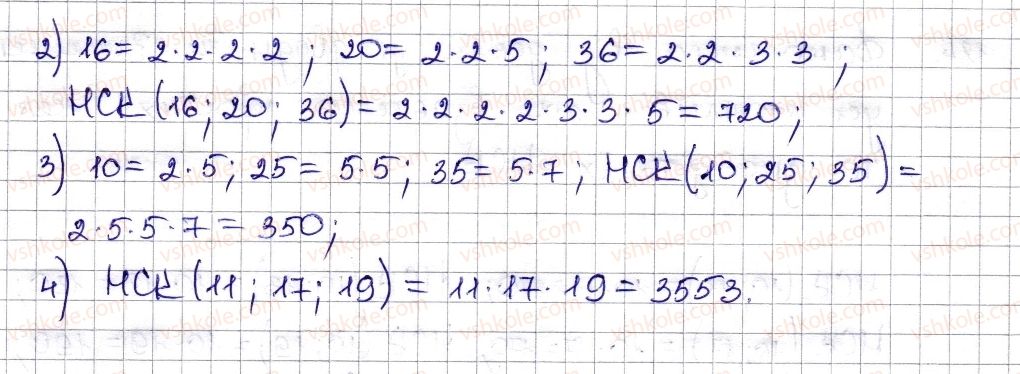 2) 16 = 2·2·2·2; 20 = 2·2·5; 36 = 2·2·3·3;
НСК (16; 20; 36) = 2·2·2·2·3·3·5 = 720;
3) 10 = 2·5; 25 = 5·5; 35 = 5·7; НСК (10; 25; 35) =
2·5·5·7 = 350;
4) НСК (11; 17; 19) = 11·17·19 = 3553.